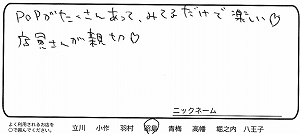 POPがたくさんあって、みてるだけで楽しい♡
店員さんが親切♡
ニックネーム
よく利用されるお店を
○で囲んでください。
立川 小作 羽村 昭島 青梅 高幡 堀之内 八王子